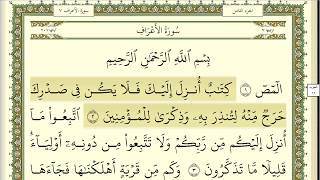 سُورَةُ الأَعْرَافِ
بِسْمِ اللَّهِ الرَّحْمَٰنِ الرَّحِيمِ
الٓمٓصٓ ١ كِتَٰبٌ أُنزِلَ إِلَيْكَ فَلَا يَكُن فِى صَدْرِكَ
حَرَجٌ مِّنْهُ لِتُنذِرَ بِهِۦ وَذِكْرَىٰ لِلْمُؤْمِنِينَ ٢ ٱتَّبِعُوا۟ مَآ
أُنزِلَ إِلَيْكُم مِّن رَّبِّكُمْ وَلَا تَتَّبِعُوا۟ مِن دُونِهِۦٓ أَوْلِيَآءَ ۗ
قَلِيلًا مَّا تَذَكَّرُونَ ٣ وَكَم مِّن قَرْيَةٍ أَهْلَكْنَٰهَا فَجَآءَهَا